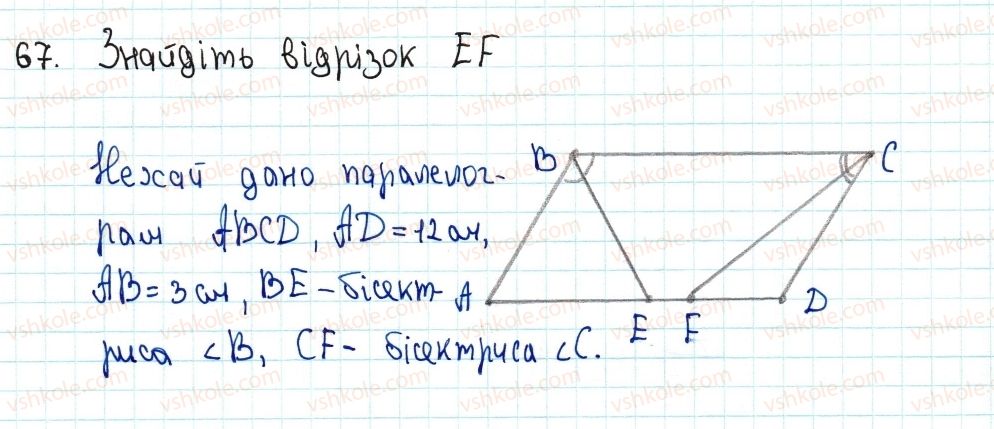 67. Знайдіть відрізок EF
Нехай дано паралелог-
рам ABCD, AD = 12 см,
AB = 3 см, BE - бісект-
риса <B, CF - бісектриса <C.
B
C
A
E
F
D
vshkole.com